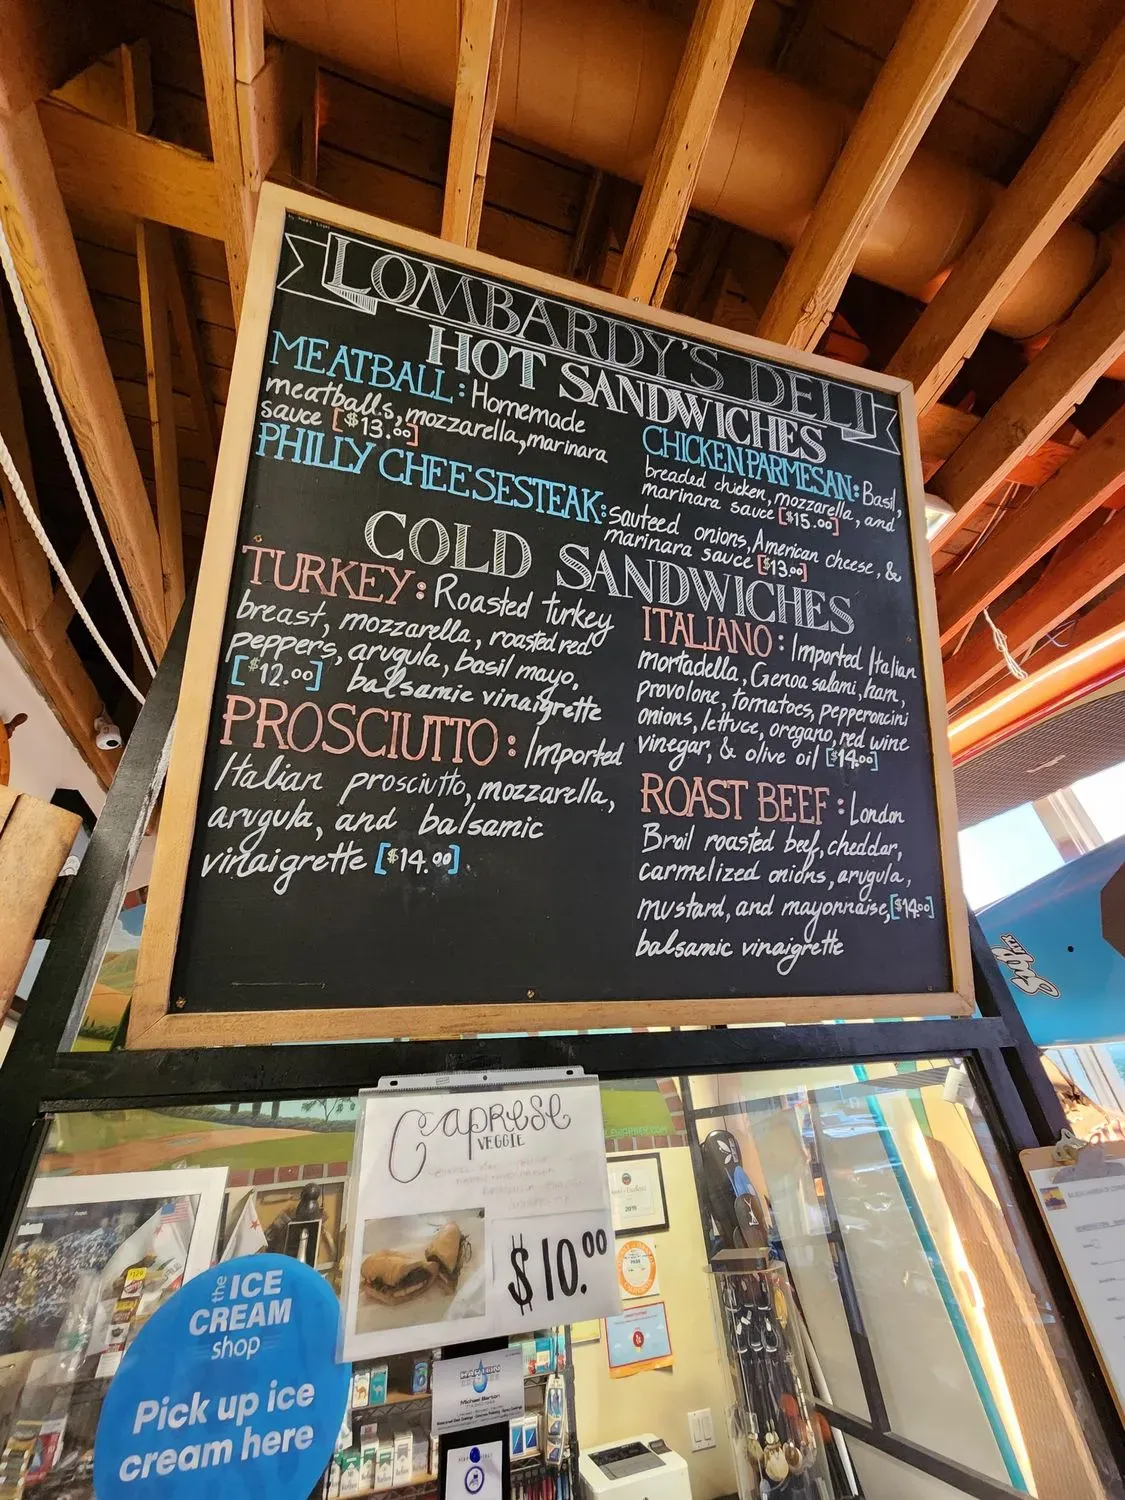 LOMBARDY'S DELI
HOT SANDWICHES
MEATBALL: Homemade
meatballs, mozzarella, marinara
sauce [$13.00]
CHICKEN PARMESAN: Basil,
breaded chicken, mozzarella, and
marinara sauce [$15.00]
PHILLY CHEESESTEAK:
sauteed onions, American cheese, &
marinara sauce [$13.00]
COLD SANDWICHES
TURKEY: Roasted turkey
breast, mozzarella, roasted red
peppers, arugula, basil mayo,
[$12.00] balsamic vinaigrette
PROSCIUTTO: Imported
Italian prosciutto, mozzarella,
arugula, and balsamic
vinaigrette [$14.00]
ITALIANO: Imported Italian
mortadella, Genoa salami, ham,
provolone, tomatoes, pepperoncini
onions, lettuce, oregano, red wine
vinegar, & olive oil [$14.00]
ROAST BEEF: London
Broil roasted beef, cheddar,
carmelized onions, arugula,
mustard, and mayonnaise, [$14.00]
balsamic vinaigrette
Caprese
VEGGIE
$10.00
the ICE
CREAM
shop
Pick up ice
cream here
Michael Barton